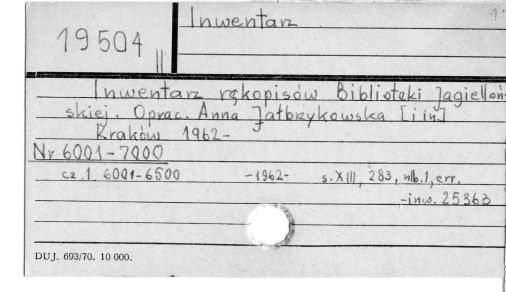 Inwentarz
19504
II
Inwentarz rękopisów Biblioteki Jagielloń-
skiej. Oprac. Anna Jałbrzykowska [i in.]
Kraków 1962-
Nr 6001-7000
cz.1. 6001-6500 -1962- s.XIII, 283, nlb.1, err.
-inw. 25363
DUJ. 693/70. 10 000.